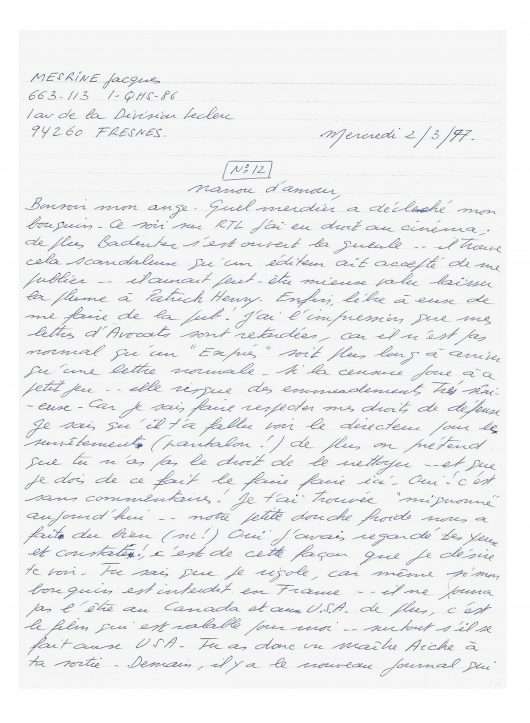 MESRINE Jacques
663-113 1-QHS-86
1 av de la Division Leclerc
94260 FRESNES.
Mercredi 2/3/77.
No 12
Nanou d'amour,
Bonsoir mon ange. Quel merdier a déclenché mon
bouquin. Ce soir sur RTL j'ai eu droit au cinéma;
de plus Badenter s'est ouvert la gueule -- il trouve
cela scandaleux qu'un éditeur ait accepté de me
publier -- il aurait peut-être mieux valu laisser
la plume à Patrick Henry. Enfin, libre à eux de
me faire de la pub! J'ai l'impression que mes
lettres d'Avocats sont retardées, car il n'est pas
normal qu'un "Exprès" soit plus long à arriver
qu'une lettre normale. Si la censure joue à ce
petit jeu -- elle risque des emmerdements très sérieux
- Car je sais faire respecter mes droits de défense
Je sais qu'il t'a fallu voir le directeur pour les
survêtements (pantalon!) de plus on prétend
que tu n'as pas le droit de le nettoyer -- et que
je dois de ce fait le faire faire ici. Oui! c'est
sans commentaires! Je t'ai trouvée "mignonne"
aujourd'hui -- notre petite douche froide nous a
fait du bien (si!) Oui j'avais regardé tes yeux
et constaté! c'est de cette façon que je désire
te voir. Tu sais que je rigole, car même si mon
bouquin est interdit en France -- il ne pourra
pas l'être au Canada et aux U.S.A. de plus, c'est
le film qui est valable pour moi -- surtout s'il se
fait aux USA. Tu as donc vu Maître Aiche à
ta sortie - Demain, il y a le nouveau journal qui